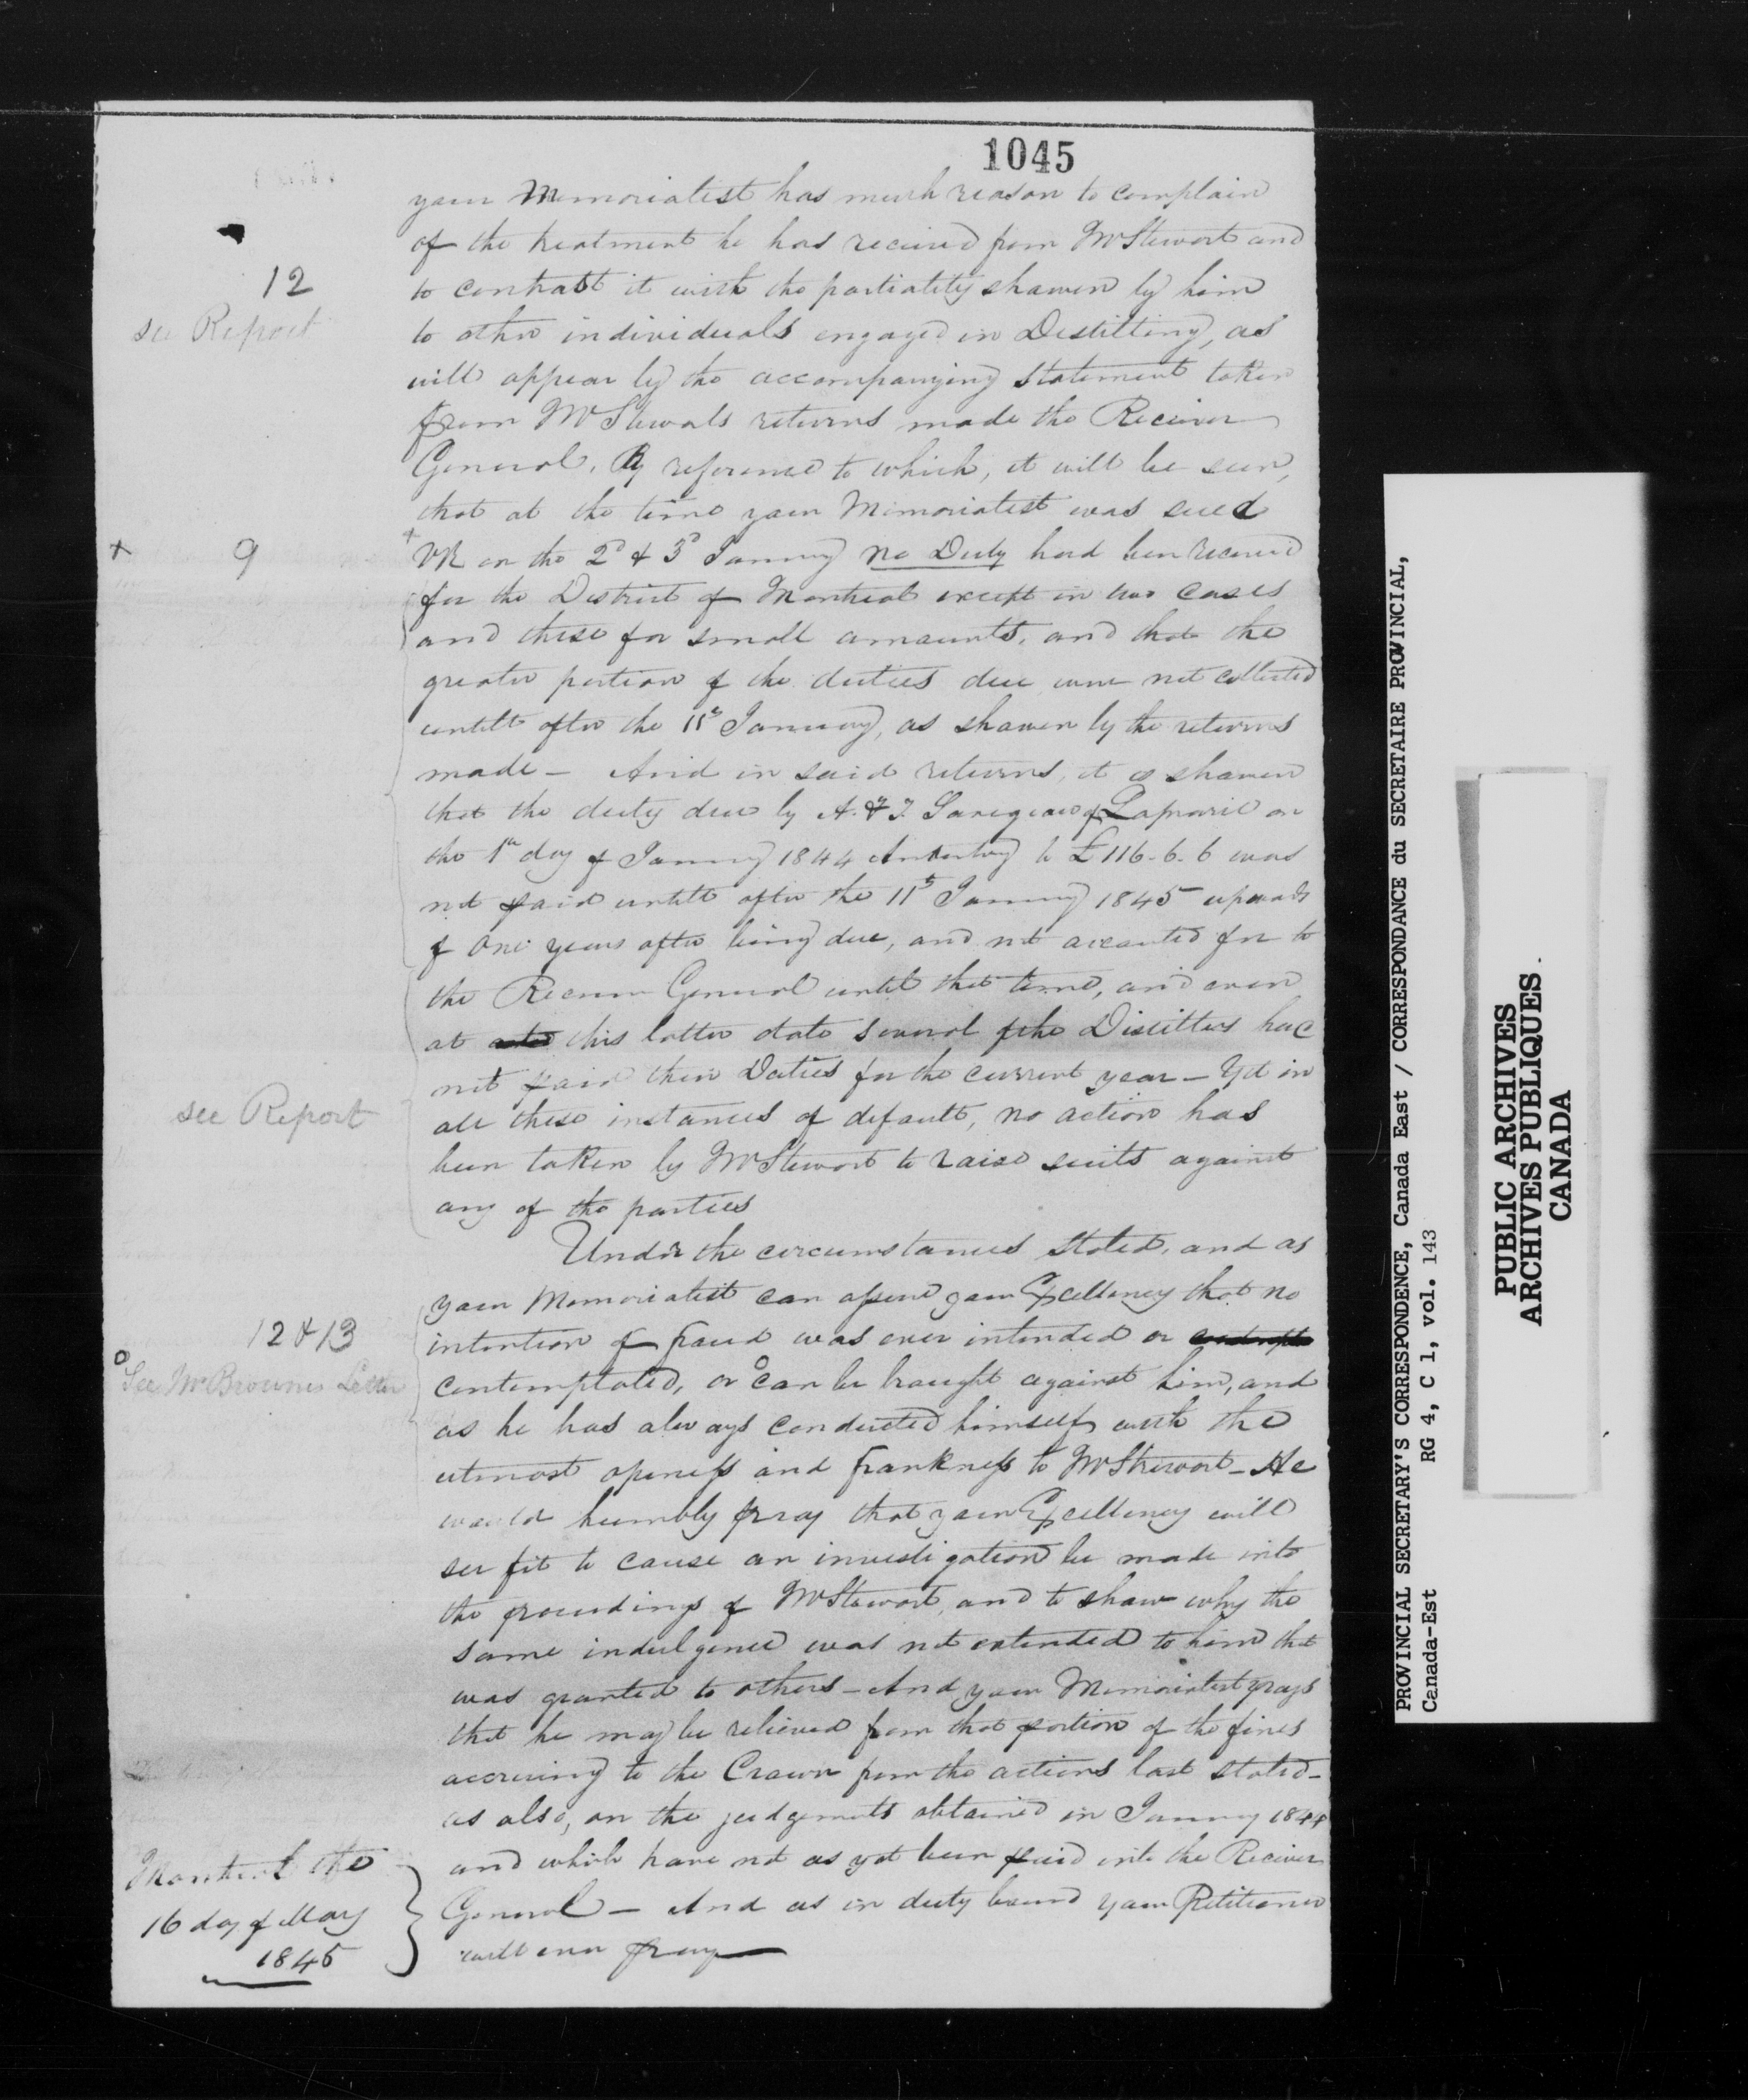 1045
your Memorialist has much reason to complain
of the treatment he has received from Mr Stewart and
12
to contrast it with the partiality shewen by him
see Report
to other individuals engaged in Destilling, as
will appear by the accompanying statement taken
from Mr Stewarts returns made the Receiver
General, By reference to which, it will be seen,
that at the time your Memorialist was sued
+ 9
+ on the 2d & 3d January no Duty had been received
for the District of Montreal except in two cases
and these for small amounts, and that the
greater portion of the duties due were not collected
untill after the 11th January, as shawen by the returns
made – And in said returns, it is shawen
that the duty due by A. & J. of Laprarie on
the 1st day of January 1844 to £116-6-6 was
not paid untill after the 11th January 1845 upwards
of one years after being due, and not accounted for to
the Receiver General until that time, and even
at this latter date several of the Distillers had
not paid their Duties for the current year – Yet in
see Report
all these instances of default, no action has
been taken by Mr Stewart to raise suits against
any of the parties
Under the circumstances stated, and as
your Memorialist can assure your Excellency that no
12 & 13
intention of fraud was ever intended or
o See Mr Brownes Letter
contemplated, or o can be brought against him, and
as he has always conducted himself with the
utmost openess and frankness to Mr Stewart – He
would humbly pray that your Excellency will
see fit to cause an investigation be made into
the proceedings of Mr Stewart, and to shaw why the
same indulgence was not extended to him that
was granted to others – And your Memorialist prays
that he may be relieved from that portion of the fines
accruing to the Crawn from the actions last stated –
as also, on the judgements obtained in January 1844
and which have not as yet been paid into the Receiver
General – And as in duty bound your Petitioner
will ever pray
Montreal the
16 day of May
1845
PROVINCIAL SECRETARY'S CORRESPONDENCE, Canada East / CORRESPONDANCE du SECRETAIRE PROVINCIAL,
Canada-Est RG 4, C 1, vol. 143
PUBLIC ARCHIVES
ARCHIVES PUBLIQUES
CANADA